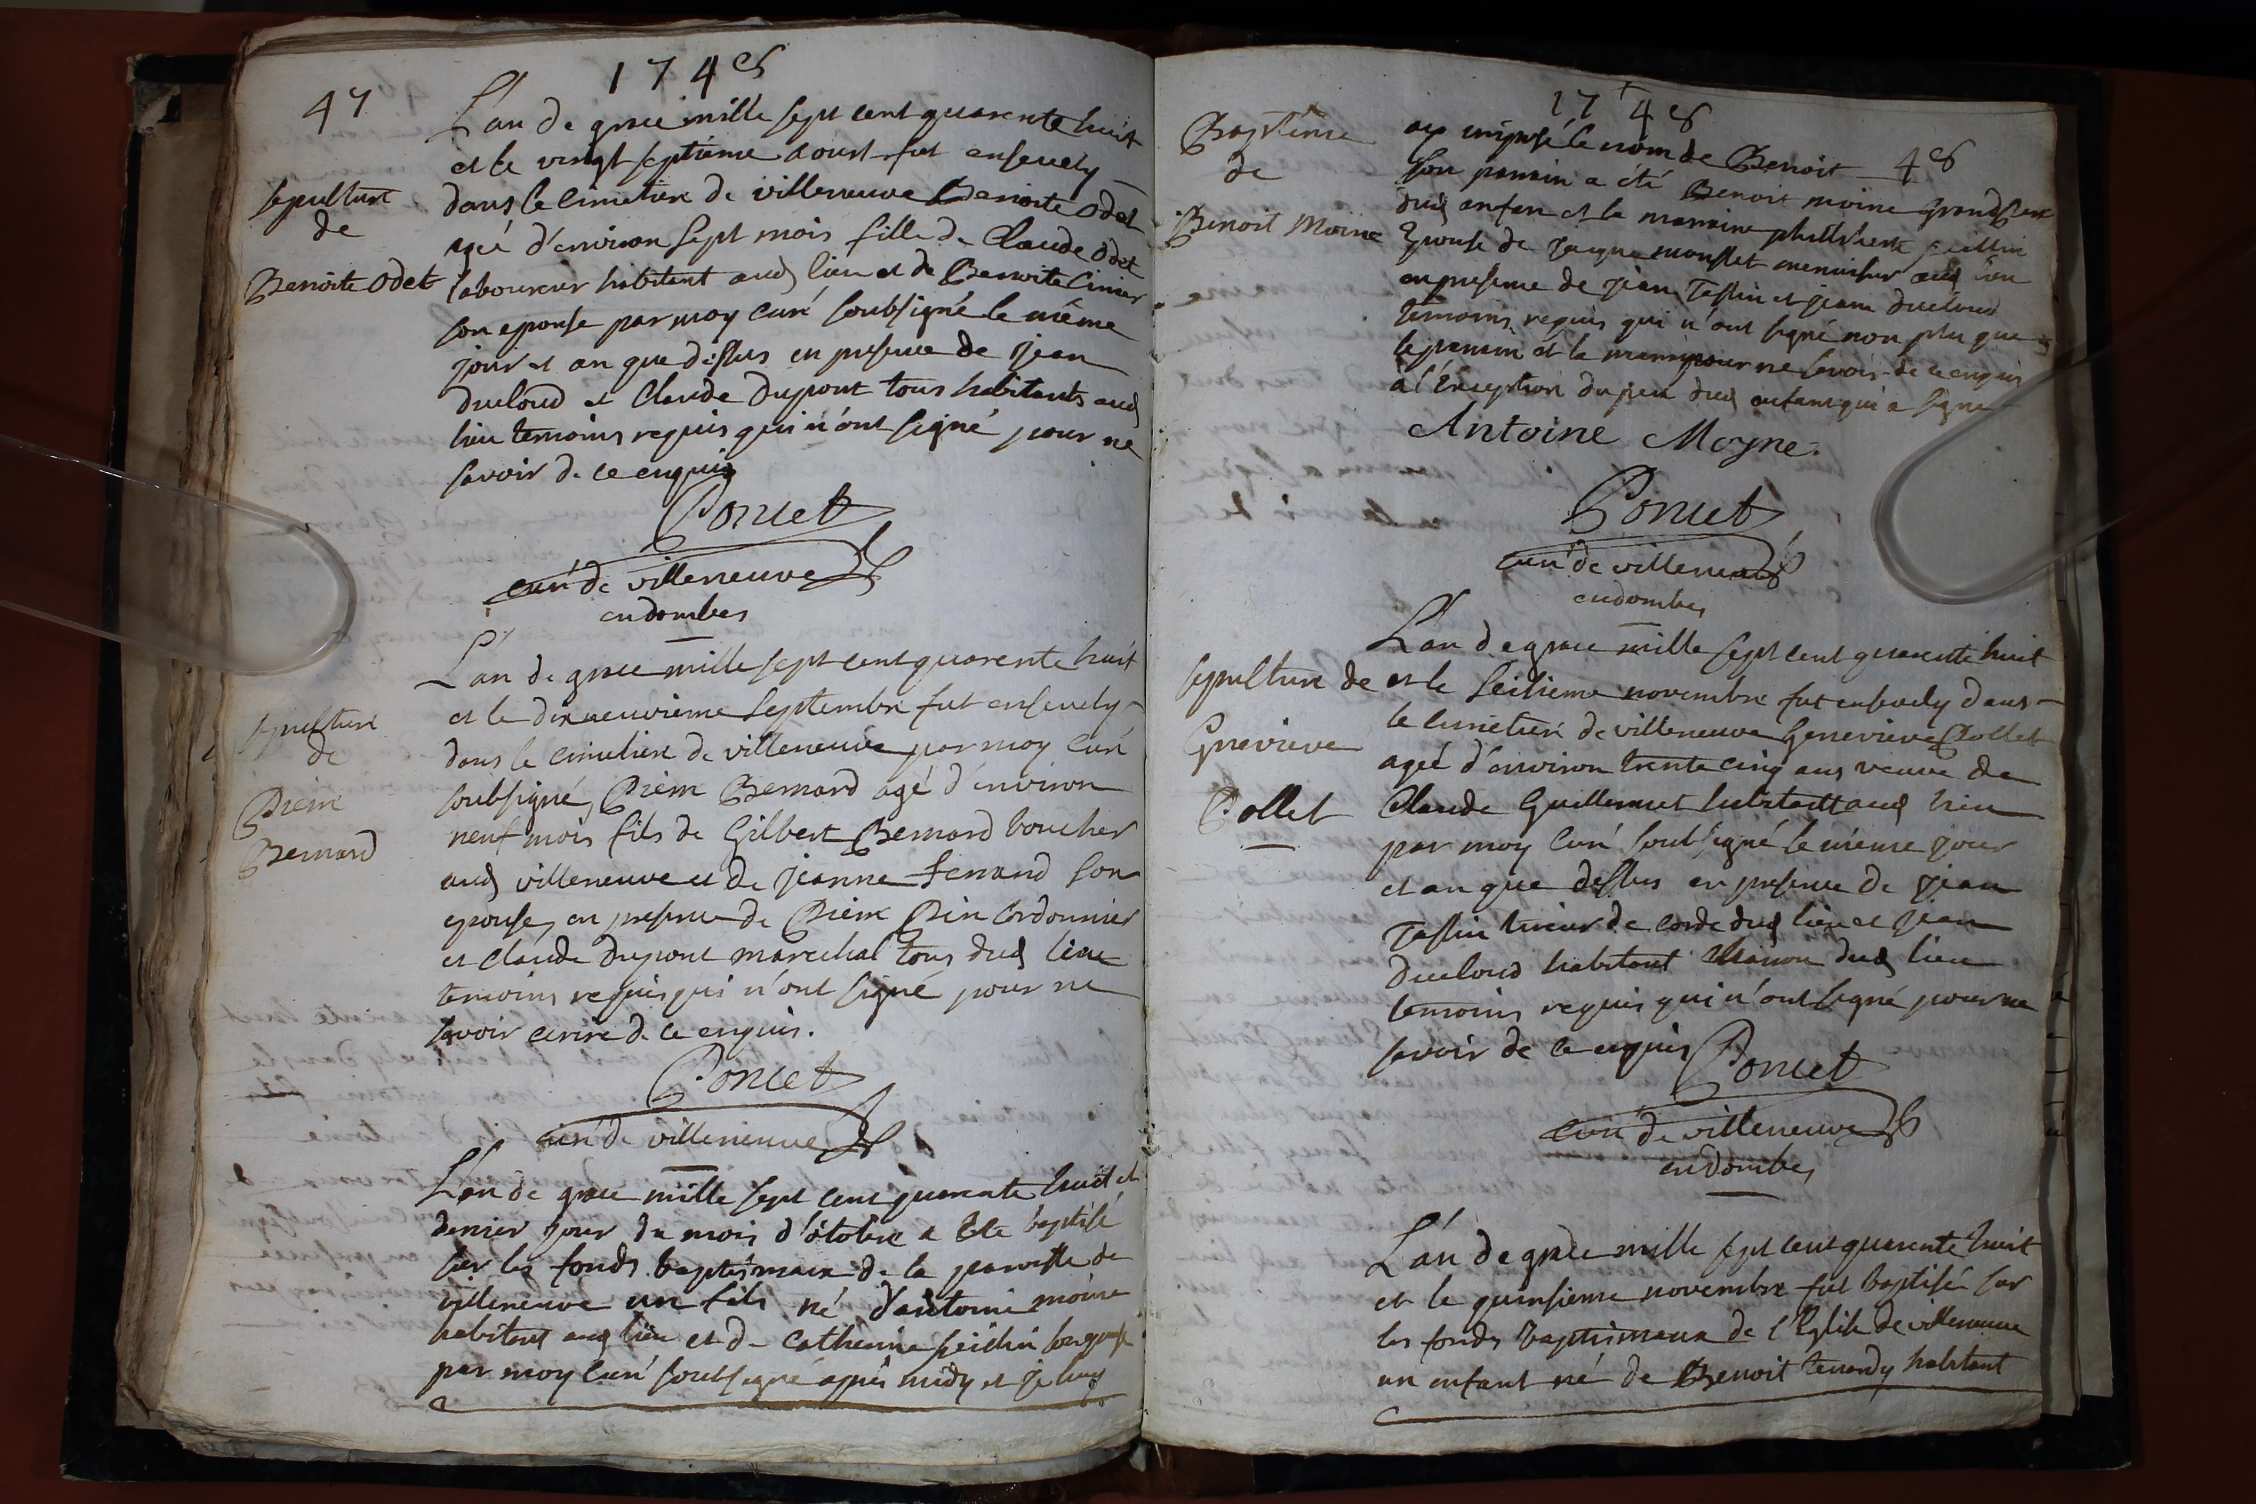 1748
47
L'an de grace mille sept cent quarente huit
et le vingt septieme aoust fut ensevely
sepulture
de
Benoite Odet
dans le cimetiere de villeneuve Benoite Odet
ageé d'environ sept mois fille de Claude Odet
laboureur habitant aud lieu et de Benoite Cimier
son epouse par moy curé soubsigné le même
jour et an que dessus en presence de jean
Ducloud et Claude Dupont tous habitants aud
lieu temoins requis qui n'ont signé pour ne
savoir de ce enquis
Poncet
curé de villeneuve
en dombes
L'an de grace mille sept cent quarente huit
et le dixneuvieme Septembre fut ensevely
sepulture
de
Pierre
Bernard
dans le cimetiere de villeneuve par moy curé
soubsigné, Pierre Bernard agé d'environ
neuf mois fils de Gilbert Bernard boucher
aud villeneuve et de jeanne ferrand son
epouse, en presence de Pierre Pin Cordonnier
et claude Dupont marechal tous dud lieu
temoins requis qui n'ont signé pour ne
savoir ecrire de ce enquis.
Poncet
curé de villeneuve
L'an de grace mille sept cent quarente huit et
dernier jour du mois d'octobre a eté baptisé
sur les fonds baptismaux de la paroisse de
villeneuve un fils né d'antoine moine
habitant aud lieu et de Catherine son epouse
par moy curé soubsigné après midy et je luy
1748
48
Baptême
de
Benoit Moine
ay imposé le nom de Benoit
son parrain a été Benoit moine grand pere
dud enfan et la marraine
Epouse de jaque menuisier aud lieu
en presence de jean Tassin et jean ducloud
temoins requis qui n'ont signé non plus que
le parrain et la marraine pour ne savoir de ce enquis
a l'Exception du pere dud enfant qui a signé
Antoine Moyne.
Poncet
curé de villeneuve
en dombes
L'an de grace mille sept cent quarente huit
sepulture de
Genevieve
Collet
et le seisieme novembre fut ensevely dans
le cimetieré de villeneuve Genevieve Collet
ageé d'environ trente cinq ans veuve de
Claude Guillermet habitant aud lieu
par moy Curé soubsigné le même jour
et an que dessus en presence de jean
Tassin tireur de corde dud lieu et jean
Ducloud habitant Masson dud lieu
temoins requis qui n'ont signé pour ne
savoir de ce enquis
Poncet
curé de villeneuve
en Dombes
L'an de grace mille sept cent quarente huit
et le quinsieme novembre fut baptisé sur
les fonds baptismaux de l'Eglise de villeneuve
un enfant né de Benoit habitant